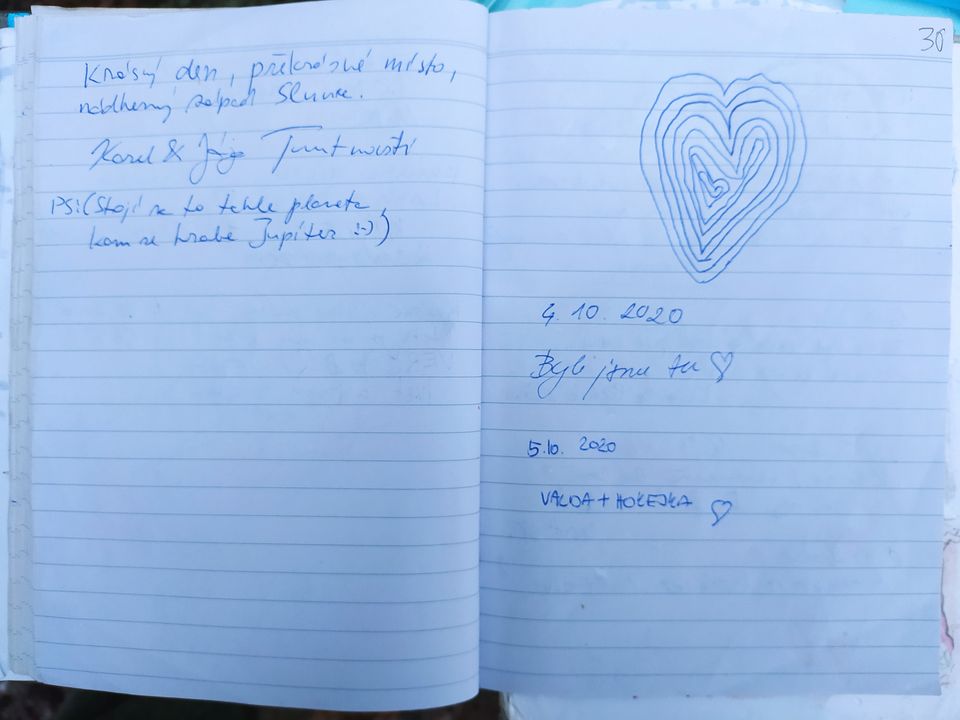 Krásný den, překrásné místo,
nádherný západ Slunce.
Karel & Jája
PS:(Stojí za to tahle planeta,
kam se hrabe Jupiter :-))
30
4. 10. 2020
Byli jsme tu ♡
5.10. 2020
VALDA + HOLEJKA ♡